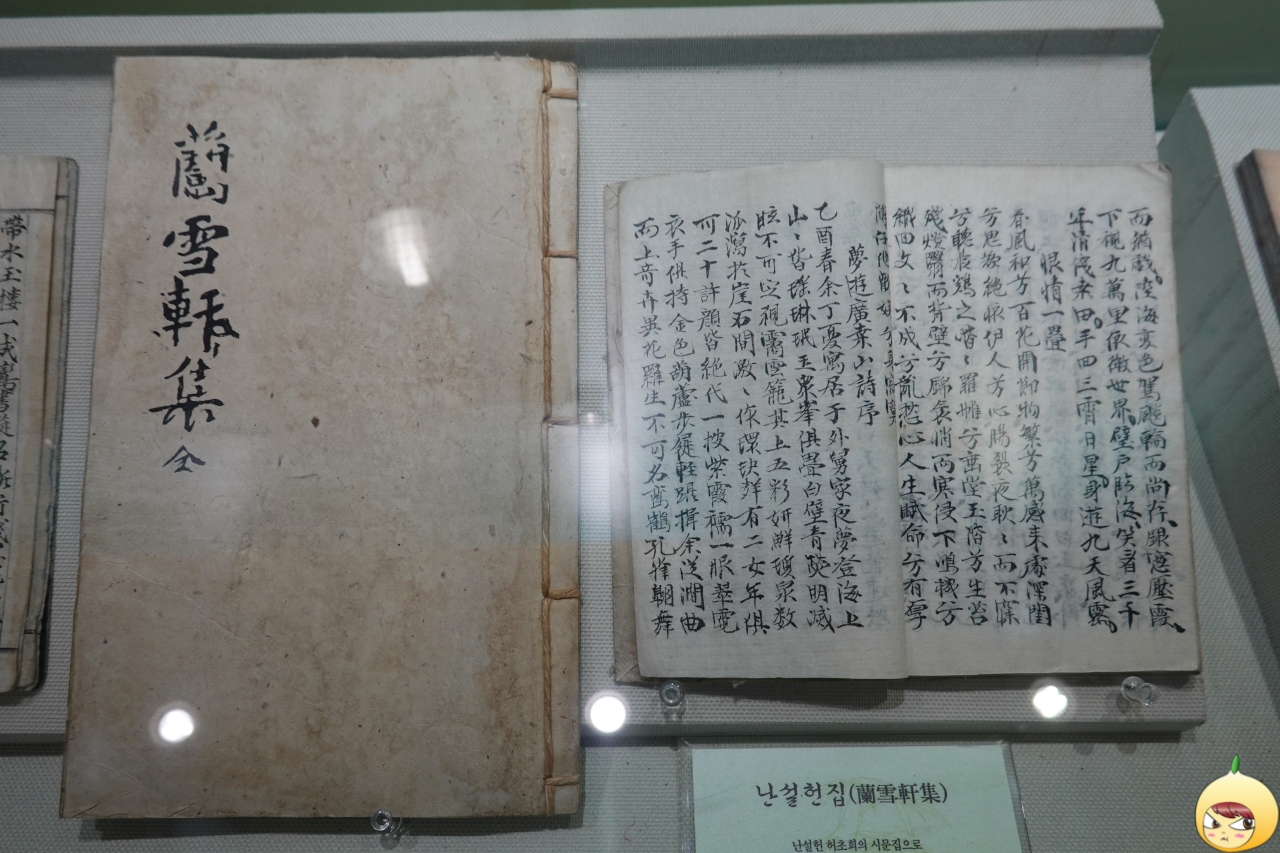 帶水玉樓一
蘭雪軒集 全
而猶戱陸海变色駕飈輪而尚存銀窓壓霞
下視九萬里依微世界壁戶臨海笑看三千
年清淺桑田手回三霄日星身遊九天風露
恨情一疊
春風和兮百花開節物繁兮萬感来處深閨
兮思欲絶懷伊人兮心腸裂夜耿〻而不寐
兮聽晨鷄之喈〻羅帷兮垂堂玉階兮生苔
殘燈翳而背壁兮錦衾悄而寒侵下鳴機兮
織回文〻不成兮亂愁心人生賦命兮有厚
夢遊廣桒山詩序
乙酉春余丁憂寓居于外舅家夜夢登海上
山〻皆瑤琳珉玉衆峯俱疊白璧青熒明滅
眩不可㝎視霱雲籠其上五彩妍鮮瓊泉数
派瀉於崖石間激〻作環玦聲有二女年俱
可二十許顔皆絶代一披紫霞襦一服翠霓
衣手俱持金色葫蘆步屣輕躡揖余從澗曲
而上奇卉異花羅生不可名鸞鶴孔翠翱舞
난설헌집(蘭雪軒集)
난설헌 허초희의 시문집으로